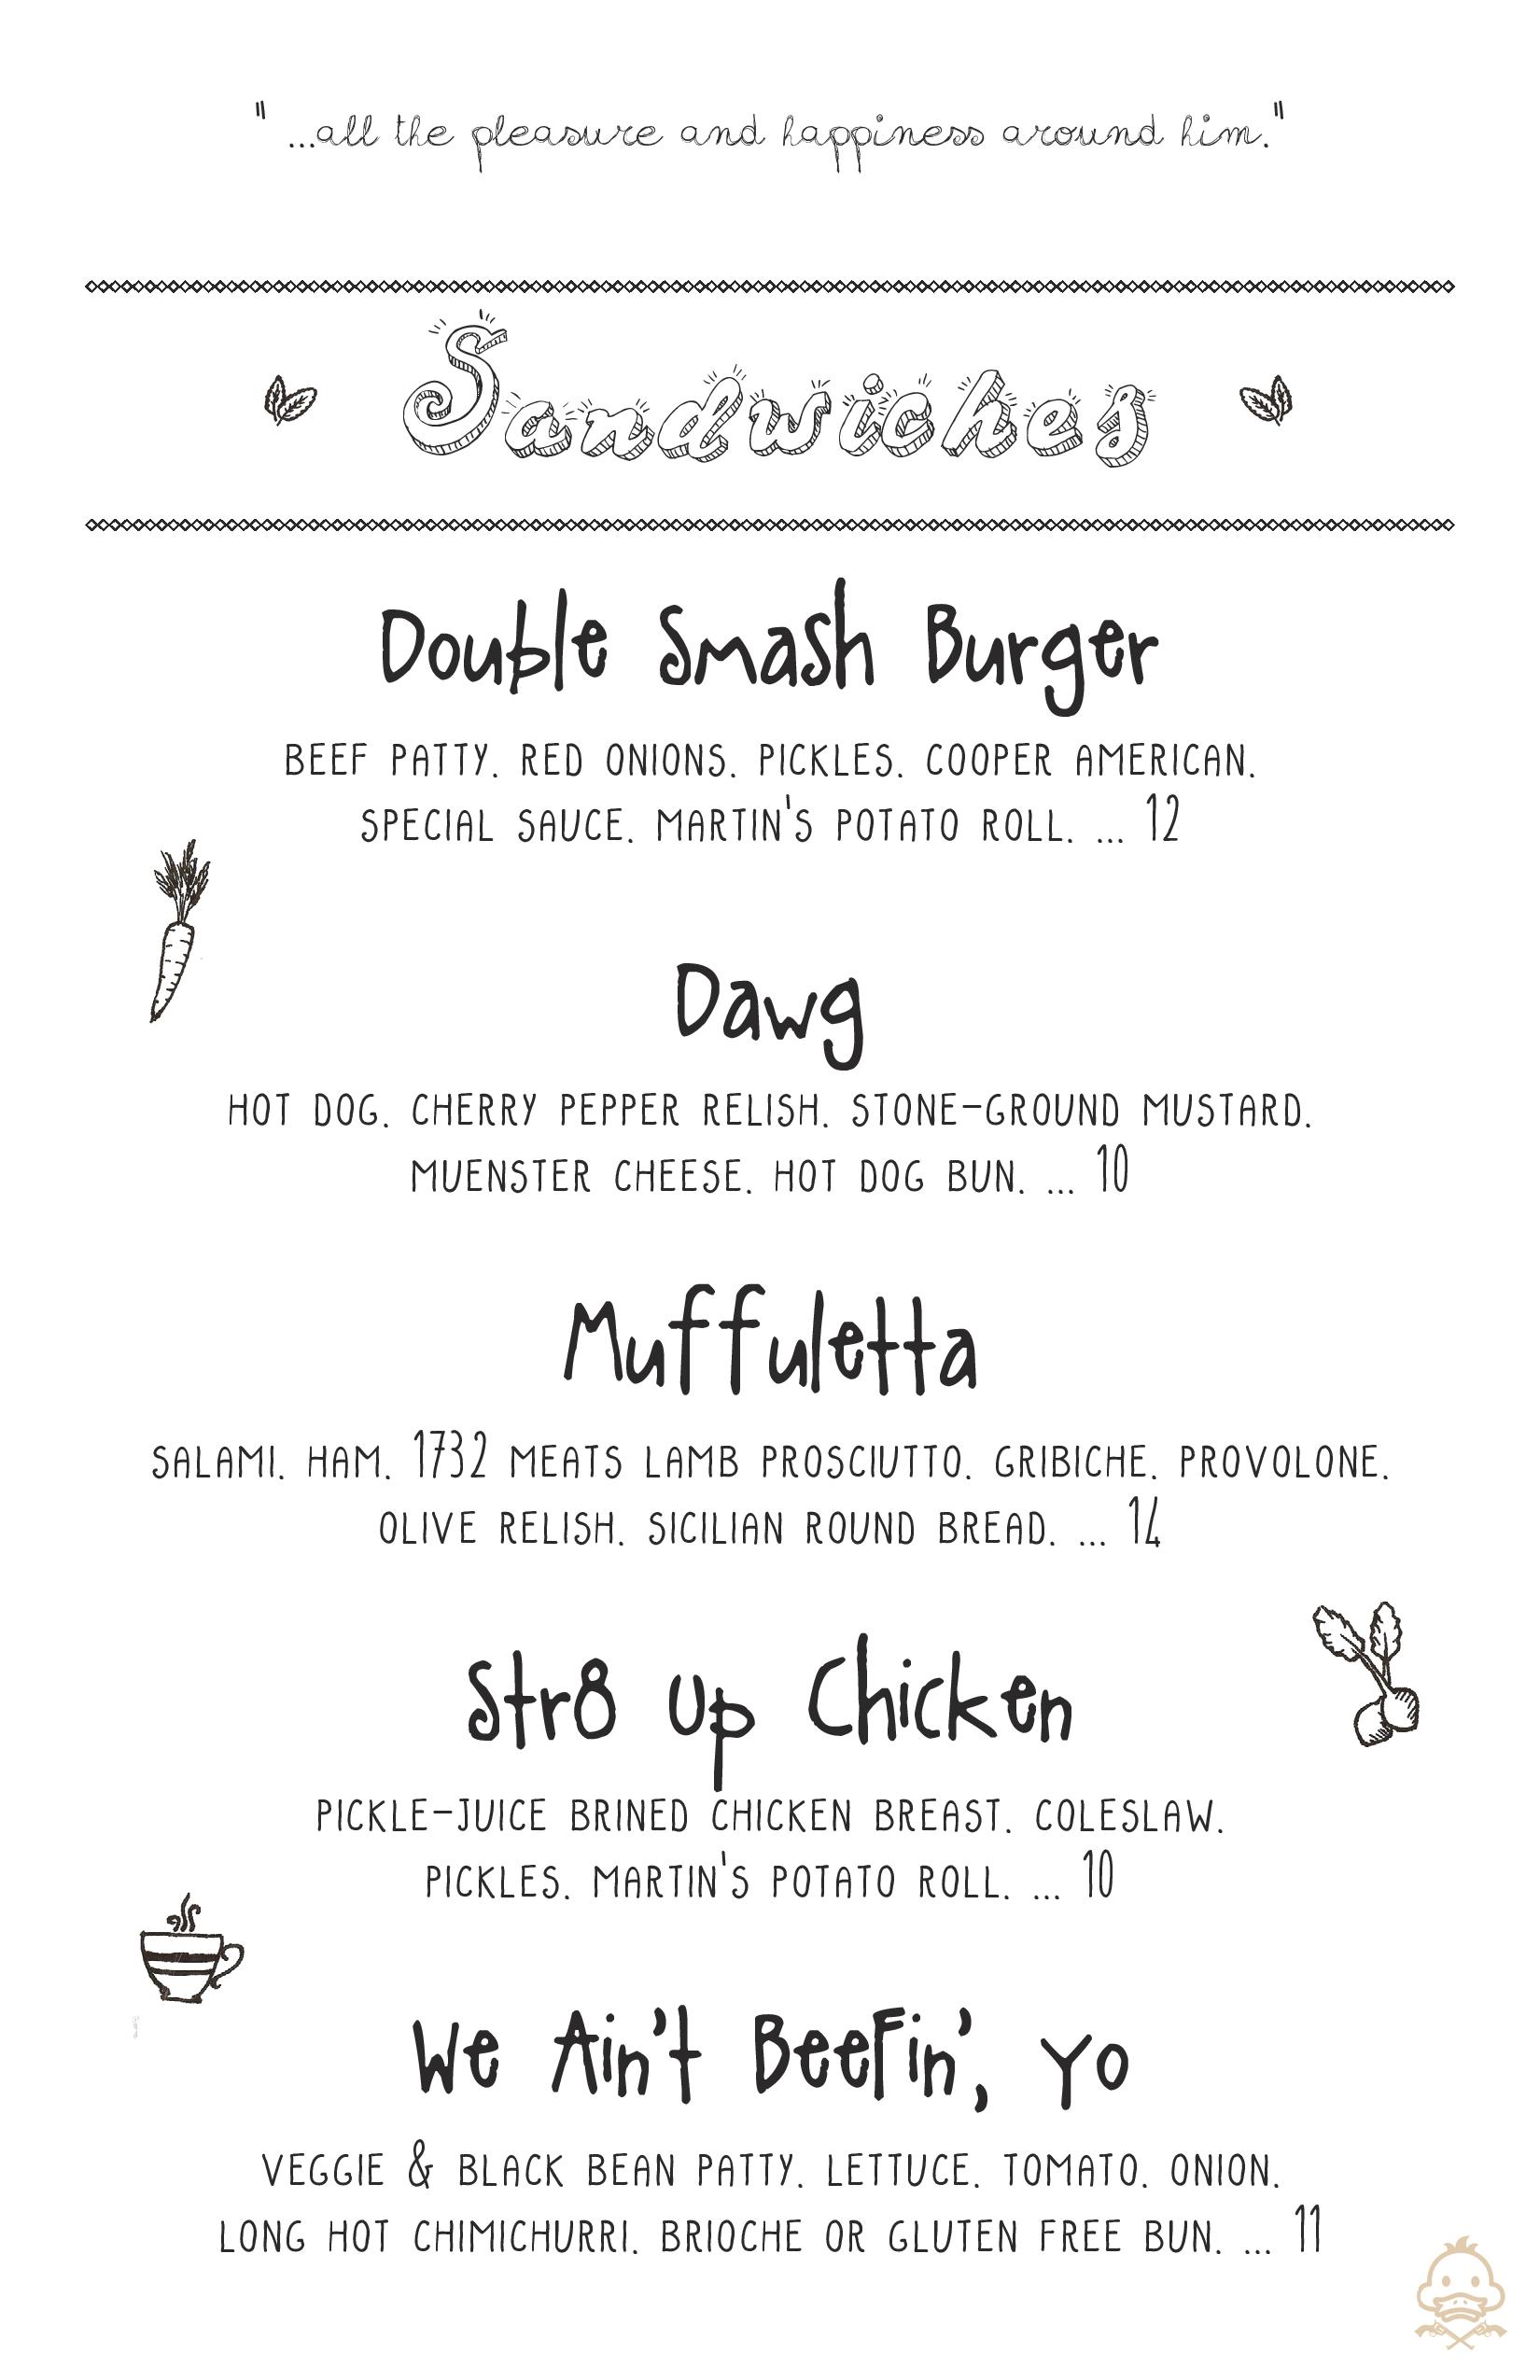 "...all the pleasure and happiness around him."
Sandwiches
Double Smash Burger
BEEF PATTY. RED ONIONS. PICKLES. COOPER AMERICAN.
SPECIAL SAUCE. MARTIN'S POTATO ROLL. ... 12
Dawg
HOT DOG. CHERRY PEPPER RELISH. STONE-GROUND MUSTARD.
MUENSTER CHEESE. HOT DOG BUN. ... 10
Muffuletta
SALAMI. HAM. 1732 MEATS LAMB PROSCIUTTO. GRIBICHE. PROVOLONE.
OLIVE RELISH. SICILIAN ROUND BREAD. ... 14
Str8 Up Chicken
PICKLE-JUICE BRINED CHICKEN BREAST. COLESLAW.
PICKLES. MARTIN'S POTATO ROLL. ... 10
We Ain't BeeFin', Yo
VEGGIE & BLACK BEAN PATTY. LETTUCE. TOMATO. ONION.
LONG HOT CHIMICHURRI. BRIOCHE OR GLUTEN FREE BUN. ... 11